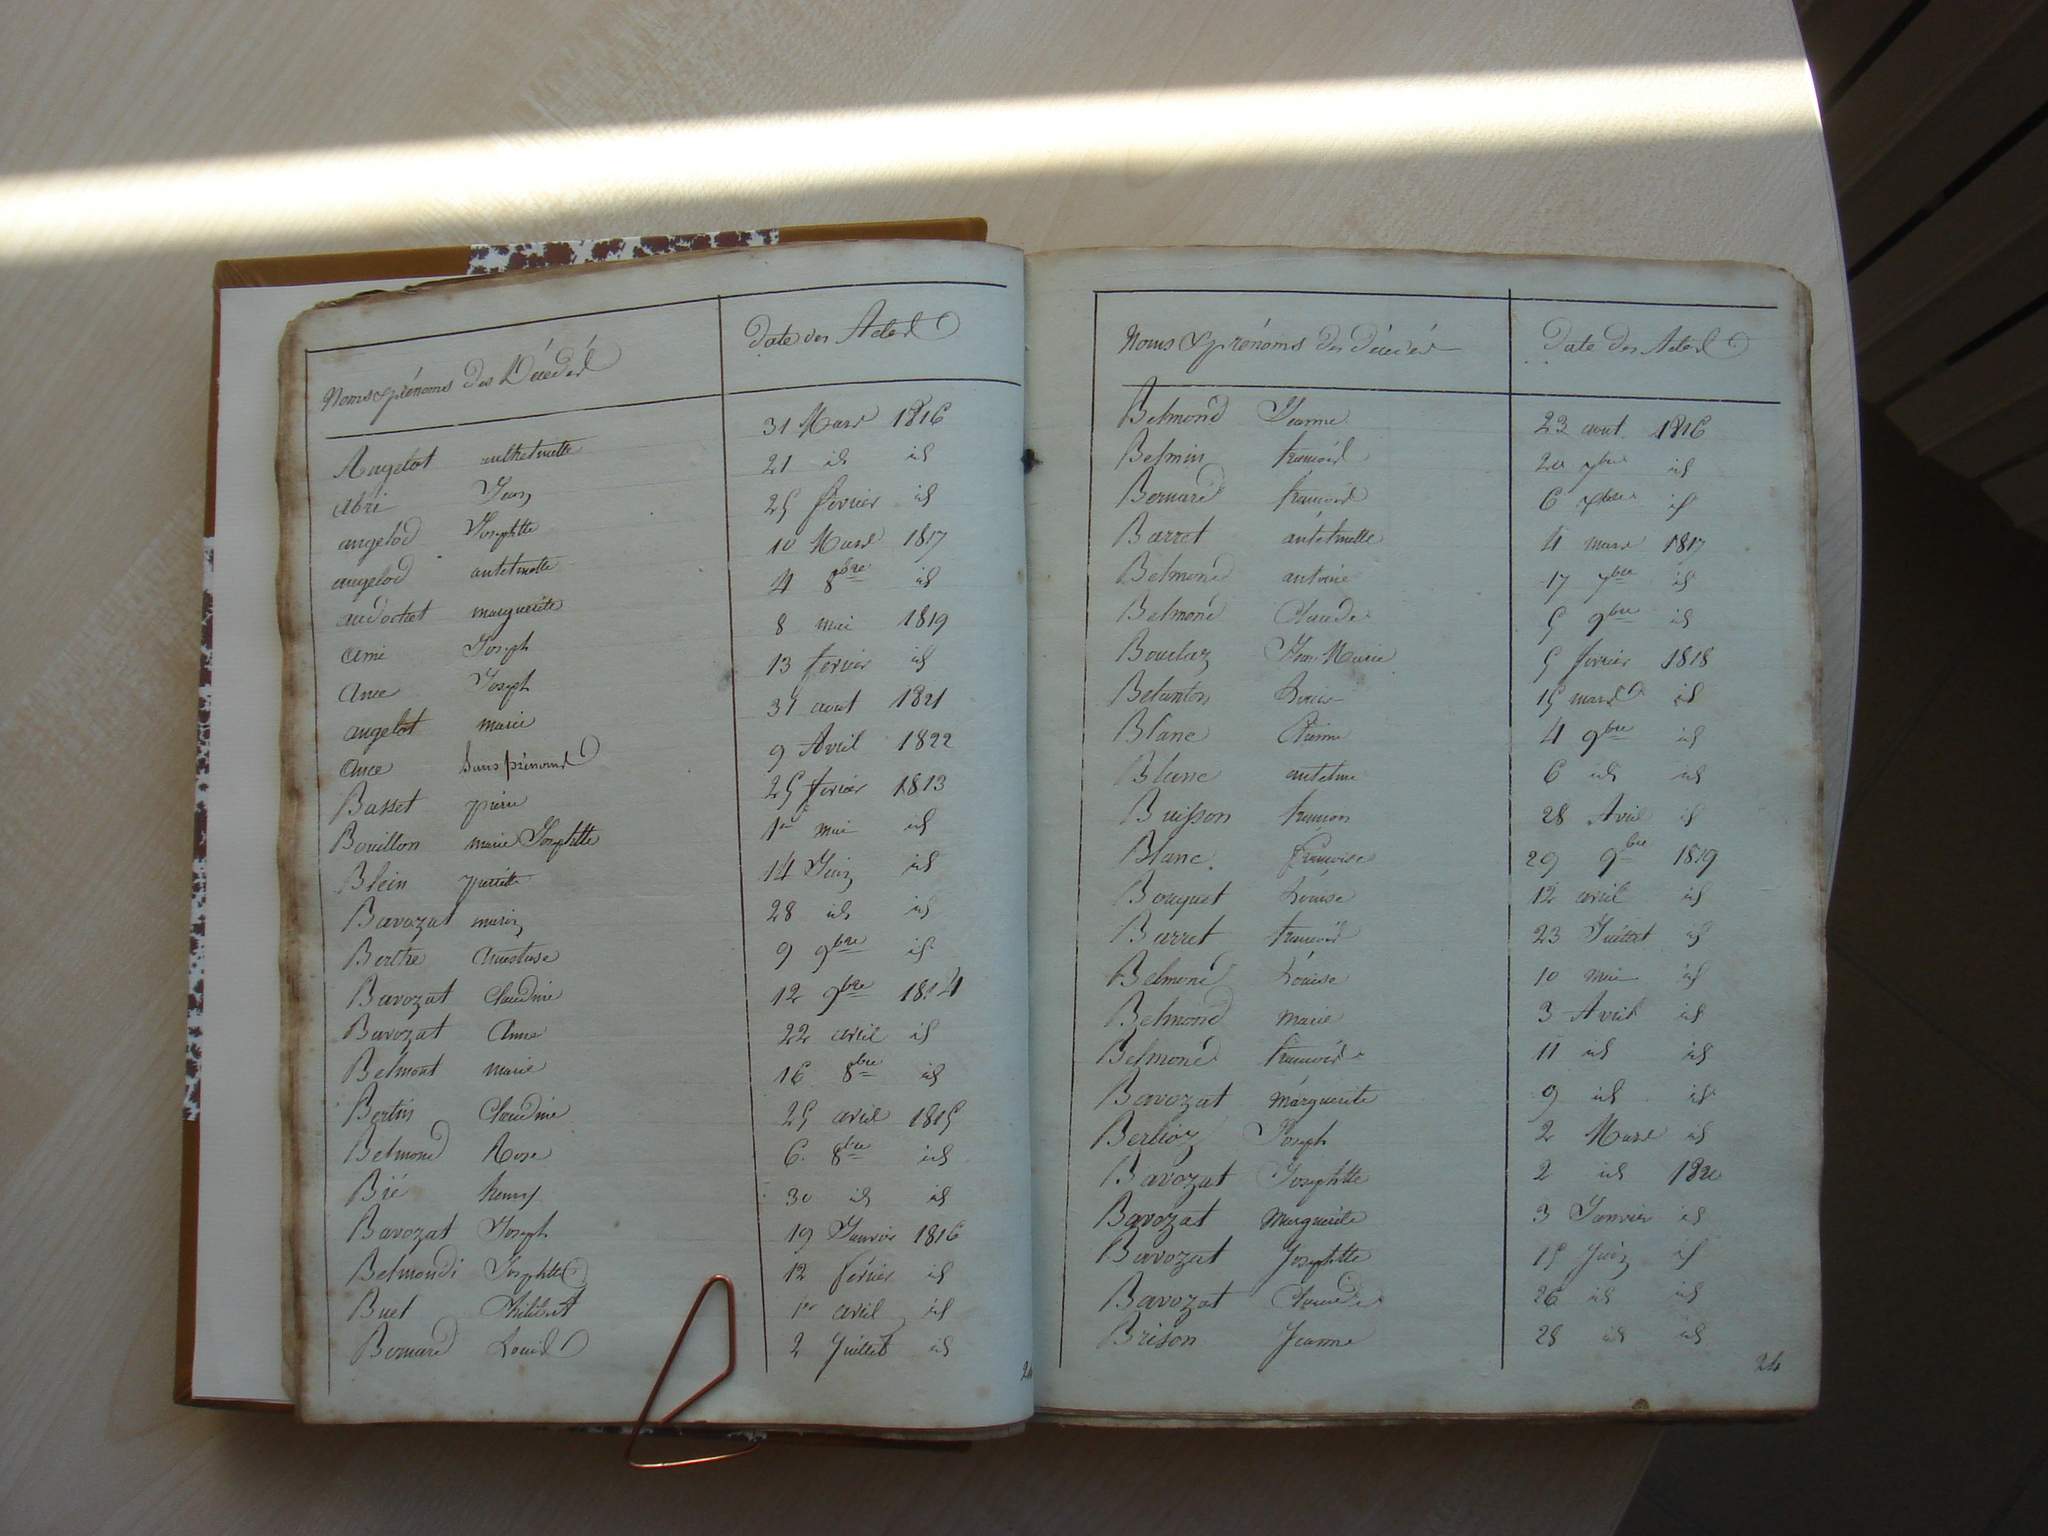 Noms & prénoms des Décédés Date des Actes
Angelot anthelmette 31 Mars 1816
abri Jean 21 id id
angelod Josephtte 25 février id
angelod antelmette 10 Mars 1817
audochet marguerite 4 8bre id
ami Joseph 8 mai 1819
Ance Joseph 13 fevrier id
angelot marie 31 aout 1821
Ance Sans prénoms 9 Avril 1822
Basset pierre 25 fevrier 1813
Bouillon marie Josephtte 1er mai id
Blein pierrette 14 Juin id
Bavozat marie 28 id id
Berthe Anastase 9 9bre id
Bavozat Claudine 12 9bre 1814
Bavozat Anne 22 avril id
Belmont marie 16 8bre id
Bertin Claudine 25 avril 1815
Belmond Rose 6 8bre id
Bié henry 30 id id
Bavozat Joseph 19 Janvier 1816
Belmondi Josephtte 12 février id
Buet Philibert 1er avril id
Bernard Louis 2 Juillet id
Noms & prénoms des décédés Date des Actes
Belmond Jeanne 23 aout 1816
Belmin francois 20 7bre id
Bernard francois 6 7bre id
Barret antelmette 4 mars 1817
Belmond antoine 17 7bre id
Belmond Claude 5 9bre id
Bouclaz Jean Marie 5 fevrier 1818
Belanton Louis 15 mars id
Blanc Etienne 4 9bre id
Blanc antelme 6 id id
Buisson francois 28 Avril id
Blanc francoise 29 9bre 1819
Bouquet Louise 12 avril id
Barret francois 23 Juillet id
Belmond Louise 10 mai id
Belmond marie 3 Avril id
Belmond francois 11 id id
Bavozat marguerite 9 id id
Berlioz Joseph 2 Mars id
Bavozat Josephtte 2 id 1820
Bavozat Marguerite 3 Janvier id
Bavozat Josephtte 15 Juin id
Bavozat Claude 26 id id
Brison Jeanne 28 id id